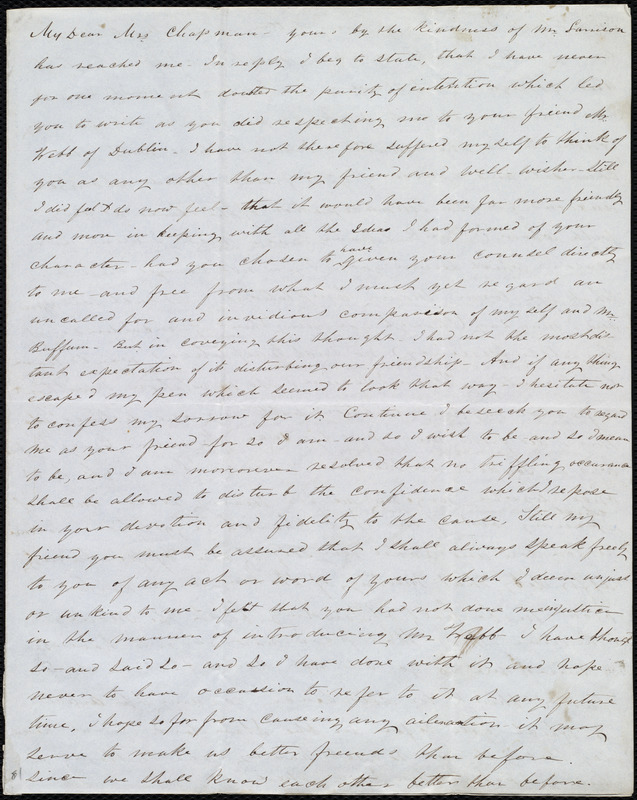 My Dear Mrs Chapman - yours by the kindness of Mr Garrison
has reached me - In reply I beg to state, that I have never
for one moment doubted the purity of intention which led
you to write as you did respecting me to your friend Mr
Webb of Dublin - I have not therefore suffered myself to think of
you as any other than my friend and well-wisher - Still
I did feel & do now feel - that it would have been far more friendly
and more in keeping with all the Ideas I had formed of your
character - had you chosen to have given your counsel directly
to me - and free from what I much yet regard an
uncalled for and invidious comparison of myself and Mr
Buffum - But in coveying this thought - I had not the most dis
tant expectation of it disturbing our friendship - And if any thing
escaped my pen which seemed to look that way - I hesitate not
to confess my sorrow for it Continue I beseech you to regard
me as your friend for so I am - and so I wish to be - and so I mean
to be, and I am moreover resolved that no triffling occurance
shall be allowed to disturb the confidence which I repose
in your devotion and fidelity to the cause, Still my
friend you must be assured that I shall always speak freely
to you of any act or word of yours which I deem unjust
or unkind to me - I felt that you had not done me injustice
in the manner of introducing Mr Webb I have thought
so - and said so - and so I have done with it and hope
never to have occassion to refer to it at any future
time, I hope so far from causeing any alienation it may
serve to make us better friends than before.
since we shall know each other better than before.